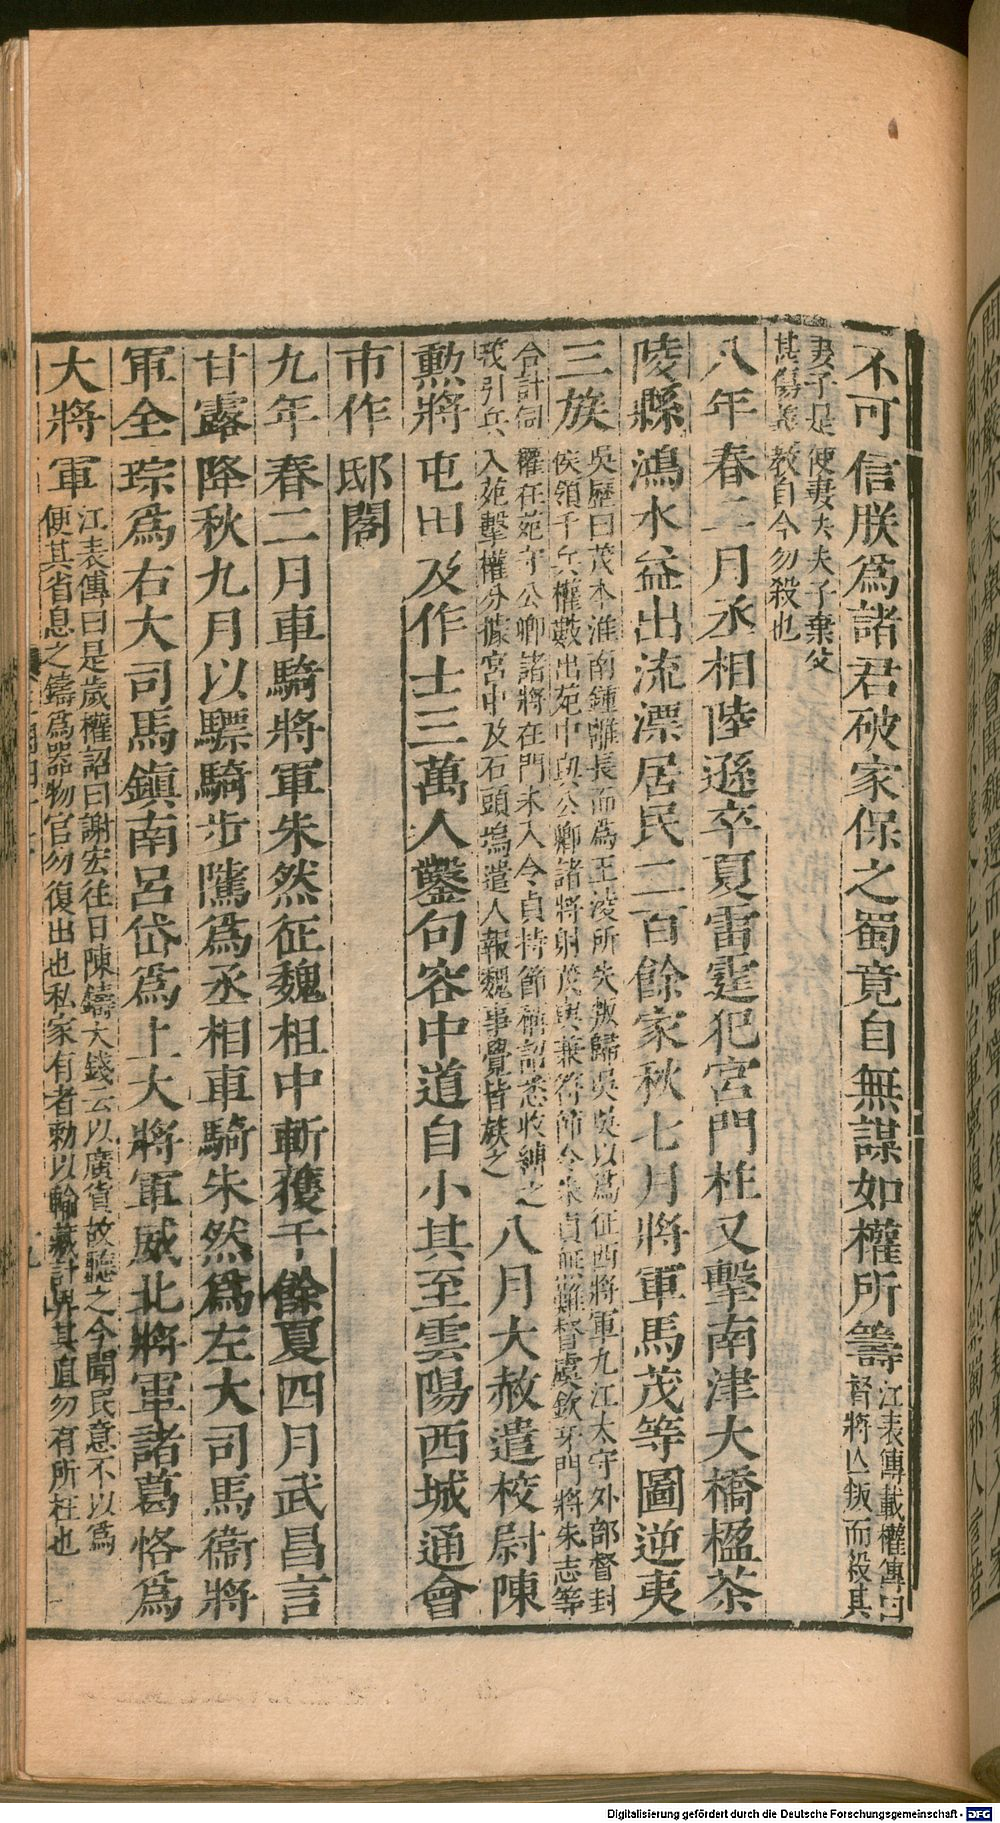 不可信朕爲諸君破家保之蜀竟自無謀如權所籌江表傳載權傳曰
督將亾叛而殺其
妻子是使妻去夫子棄父
其傷義教自今勿殺也
八年春二月丞相陸遜卒夏雷霆犯宮門柱又擊南津大橋楹茶
陵縣鴻水益出流漂居民二百餘家秋七月將軍馬茂等圖逆夷
三族吳歷曰茂本淮南鍾離長而爲王凌所失叛歸吳吳以爲征西將軍九江太守外部督封
侯領千兵權數出苑中與公卿諸將射茂與兼符節令朱貞無難督虞欽牙門將朱志等
合計伺權在苑中公卿諸將在門未入令貞持節稱詔悉收縛之
茂引兵入苑擊權分據宮中及石頭塢遣人報魏事覺皆族之八月大赦遣校尉陳
勲將屯田及作士三萬人鑿句容中道自小其至雲陽西城通會
市作邸閣
九年春二月車騎將軍朱然征魏柤中斬獲千餘夏四月武昌言
甘露降秋九月以驃騎步隲爲丞相車騎朱然爲左大司馬衞將
軍全琮爲右大司馬鎮南呂岱爲上大將軍威北將軍諸葛恪爲
大將軍江表傳曰是歲權詔曰謝宏往日陳鑄大錢云以廣貨故聽之今聞民意不以爲
便其省息之鑄爲器物官勿復出也私家有者勑以輸藏計畀其直勿有所枉也
Digitalisierung gefördert durch die Deutsche Forschungsgemeinschaft - DFG